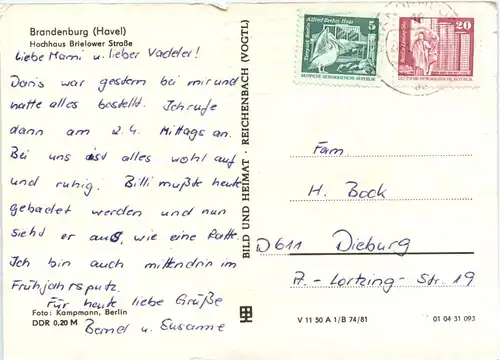 Brandenburg (Havel)
Hochhaus Brielower Straße
Liebe Mami u. lieber Vadder!
Doris war gestern bei mir und
hatte alles bestellt. Ich rufe
dann am 2.4. Mittags an.
Bei uns ist alles wohl auf
und ruhig. Billi mußte heute
gebadet werden und nun
sieht er aus, wie eine Ratte.
Ich bin auch mittendrin im
Frühjahrsputz.
Für heute liebe Grüße
Bernd u. Susanne
Foto: Kampmann, Berlin
DDR 0,20 M
BILD UND HEIMAT · REICHENBACH (VOGTL)
Alfred-Brehm-Haus
5
Tierpark Berlin
DEUTSCHE DEMOKRATISCHE REPUBLIK
20
DEUTSCHE DEMOKRATISCHE REPUBLIK
Fam
H. Bock
D 611 Dieburg
A.-Lortzing-Str. 19
V 11 50 A 1/B 74/81
01 04 31 093